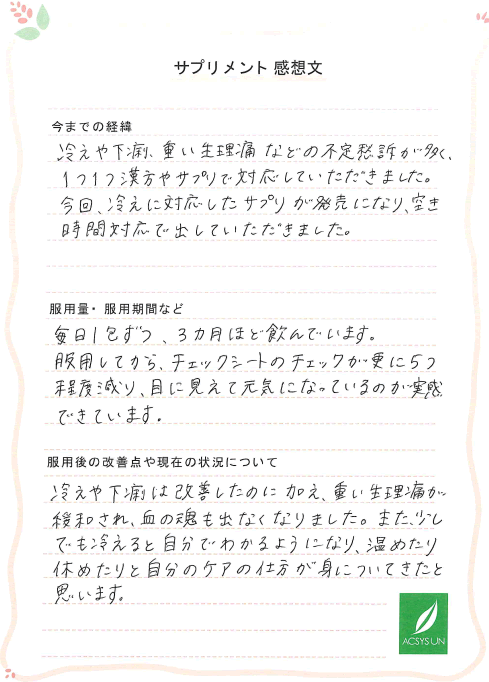 サプリメント 感想文
今までの経緯
冷えや下痢、重い生理痛 などの不定愁訴が多く、
1つ1つ漢方やサプリで対応していただきました。
今回、冷えに対応したサプリ が発売になり、空き
時間対応で出していただきました。
服用量・服用期間など
毎日1包ずつ、3カ月ほど飲んでいます。
服用してから、チェックシートのチェックが更に5つ
程度減り、目に見えて元気になっているのが実感
できています。
服用後の改善点や現在の状況について
冷えや下痢は改善したのに加え、重い生理痛が
緩和され、血の塊も出なくなりました。また、少し
でも冷えると自分でわかるようになり、温めたり
休めたりと自分のケアの仕方が身についてきたと
思います。
ACSYSUN